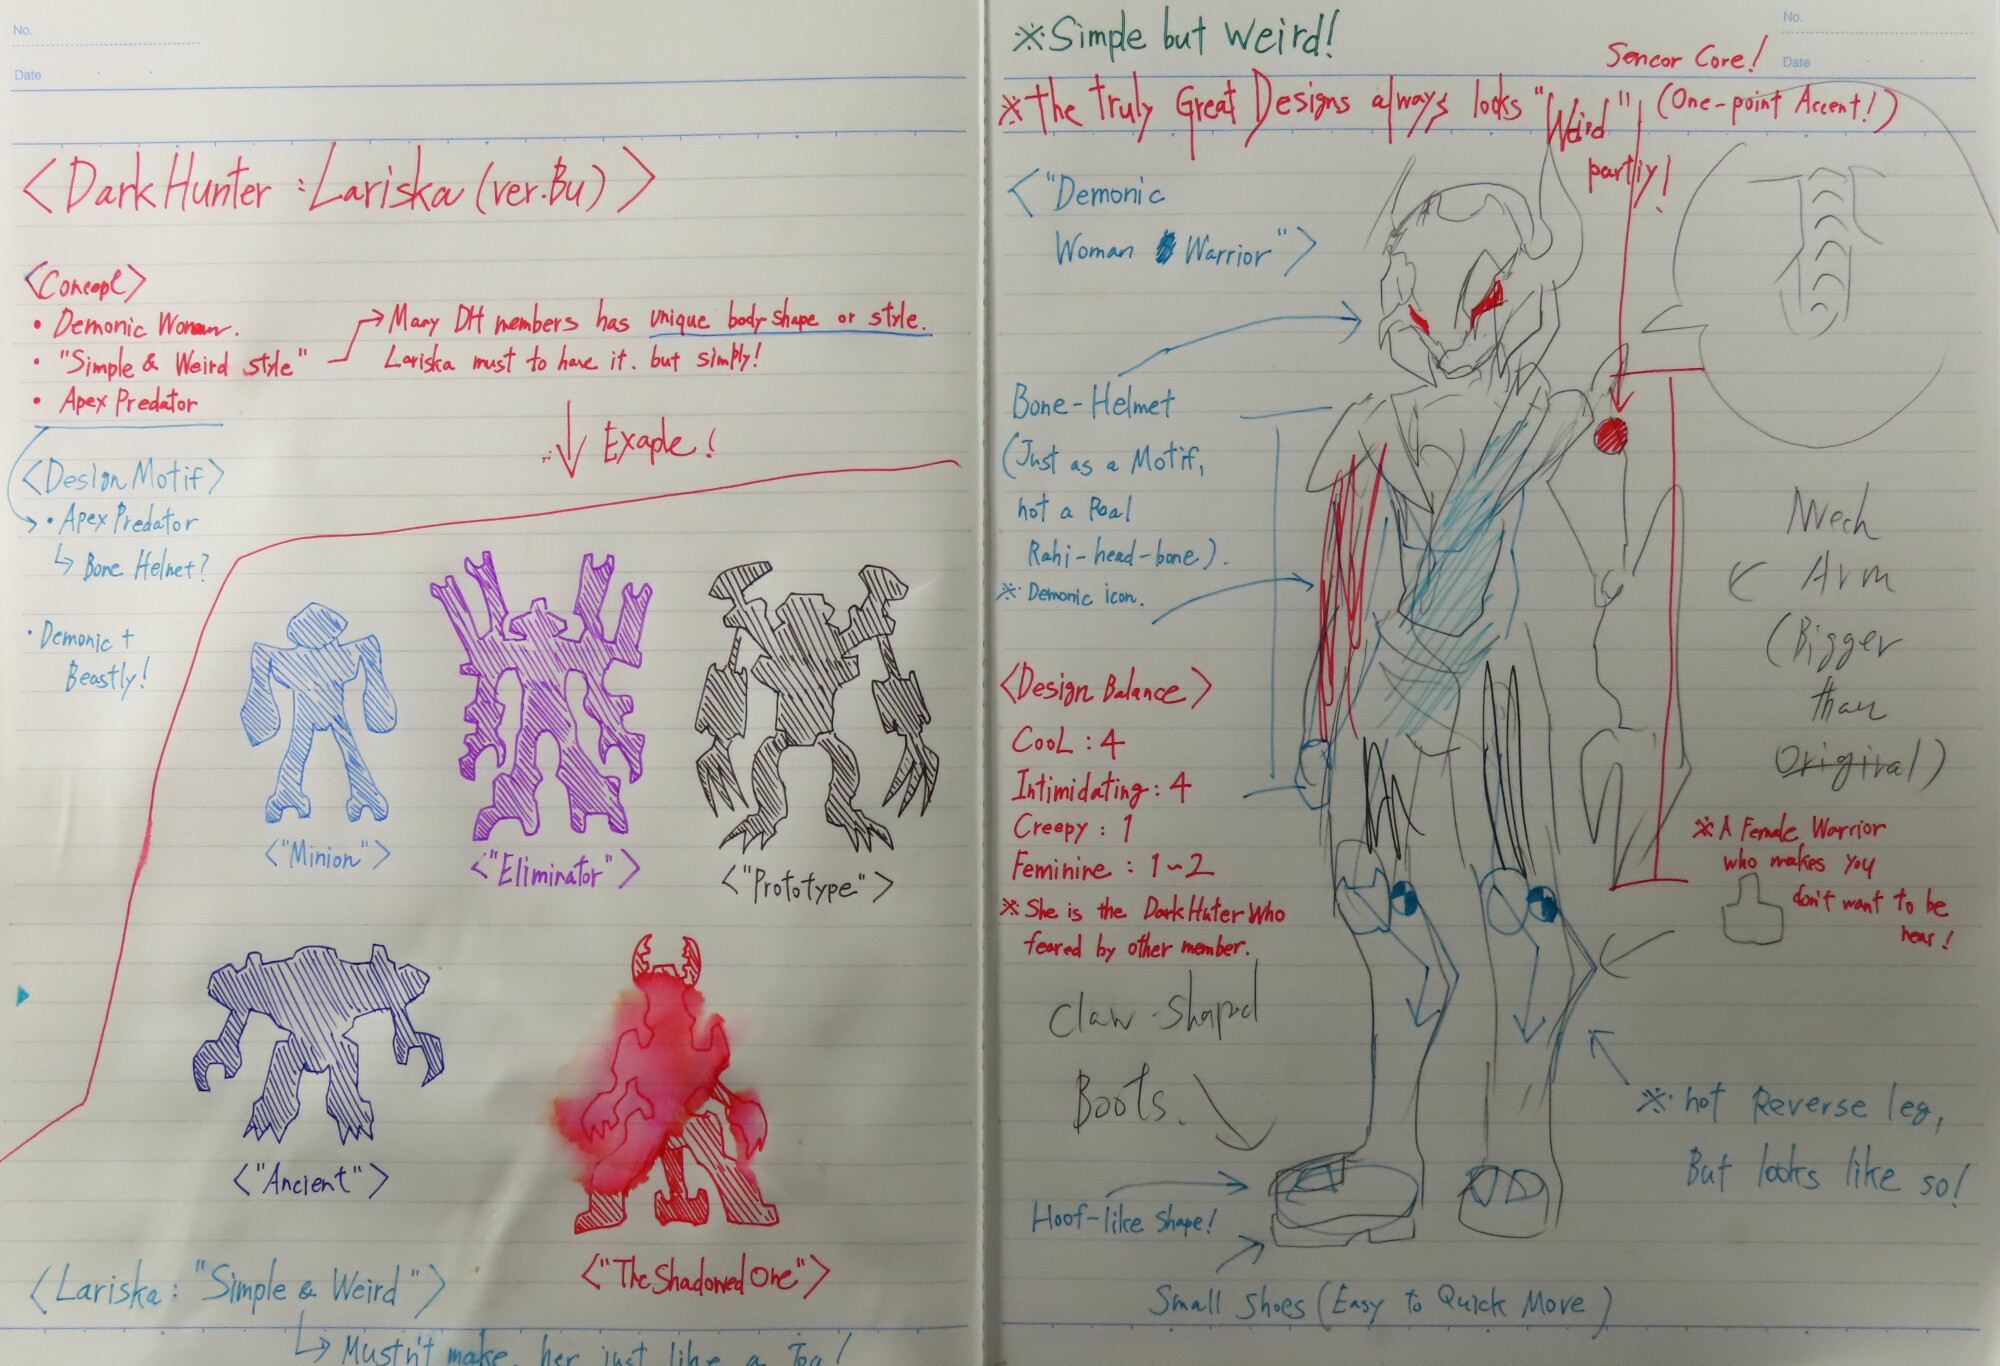 No.
Date
<Dark Hunter : Lariska (ver.Bu)>
<Concept>
• Demonic Woman.
• "Simple & Weird style"
• Apex Predator
Many DH members has unique body shape or style.
Lariska must to have it. but simply!
Exaple!
<Design Motif>
• Apex Predator
Bone Helmet?
• Demonic +
Beastly!
<"Minion">
<"Eliminator">
<"Prototype">
<"Ancient">
<"The Shadowed One">
<Lariska : "Simple & Weird">
Mustn't make her just like a Toa!
No.
Date
※Simple but Weird!
※The Truly Great Designs always looks "Weird"
partly!
Sencor Core!
(One-point Accent!)
<"Demonic
Woman Warrior">
Bone-Helmet
(Just as a Motif,
not a Real
Rahi-head-bone).
※Demonic icon.
<Design Balance>
Cool : 4
Intimidating : 4
Creepy : 1
Feminine : 1~2
※She is the Dark Huter Who
feared by other member.
Mech
Arm
(Bigger
than
Original)
※A Female Warrior
who makes you
don't want to be
near!
Claw-shaped
Boots.
※not Reverse leg,
But looks like so!
Hoof-like shape!
Small shoes (Easy to Quick Move)